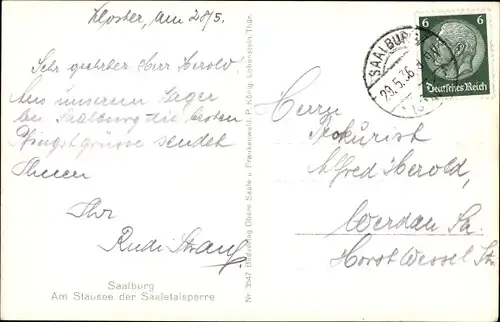 Kloster, am 28/5.
Sehr geehrter Herr Herold.
Aus unserem Lager
bei Saalburg die besten
Pfingstgrüsse sendet
Ihnen
Ihr
Rudi Strauß
Saalburg
Am Stausee der Saaletalsperre
Nr. 3547 Bildverlag Obere Saale u. Frankenwald, P. König, Lobenstein, Thür.
6 6
Deutsches Reich
SAALBURG
29.5.36
Herrn
Prokurist
Alfred Herold,
Werdau Sa.
Horst Wessel Str.